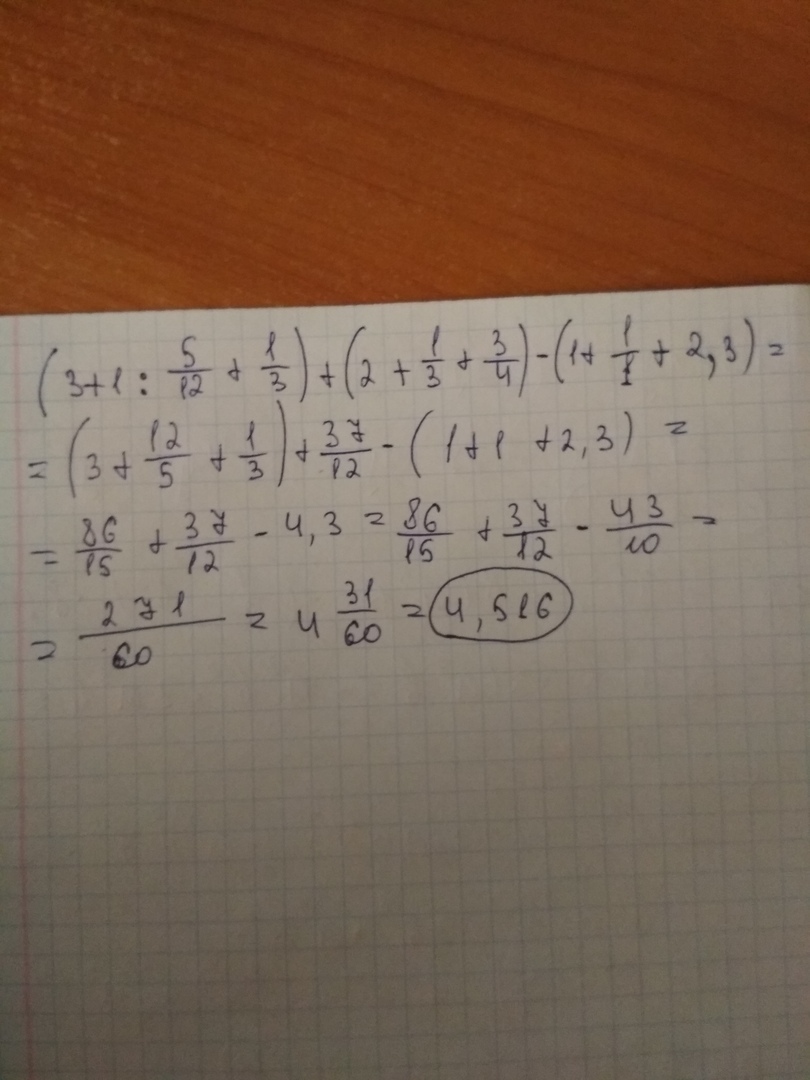 (3+1 : 5/12 + 1/3) + (2 + 1/3 + 3/4) - (1 + 1/1 + 2,3) =
= (3 + 12/5 + 1/3) + 37/12 - (1+1 +2,3) =
= 86/15 + 37/12 - 4,3 = 86/15 + 37/12 - 43/10 =
= 271/60 = 4 31/60 = 4,516